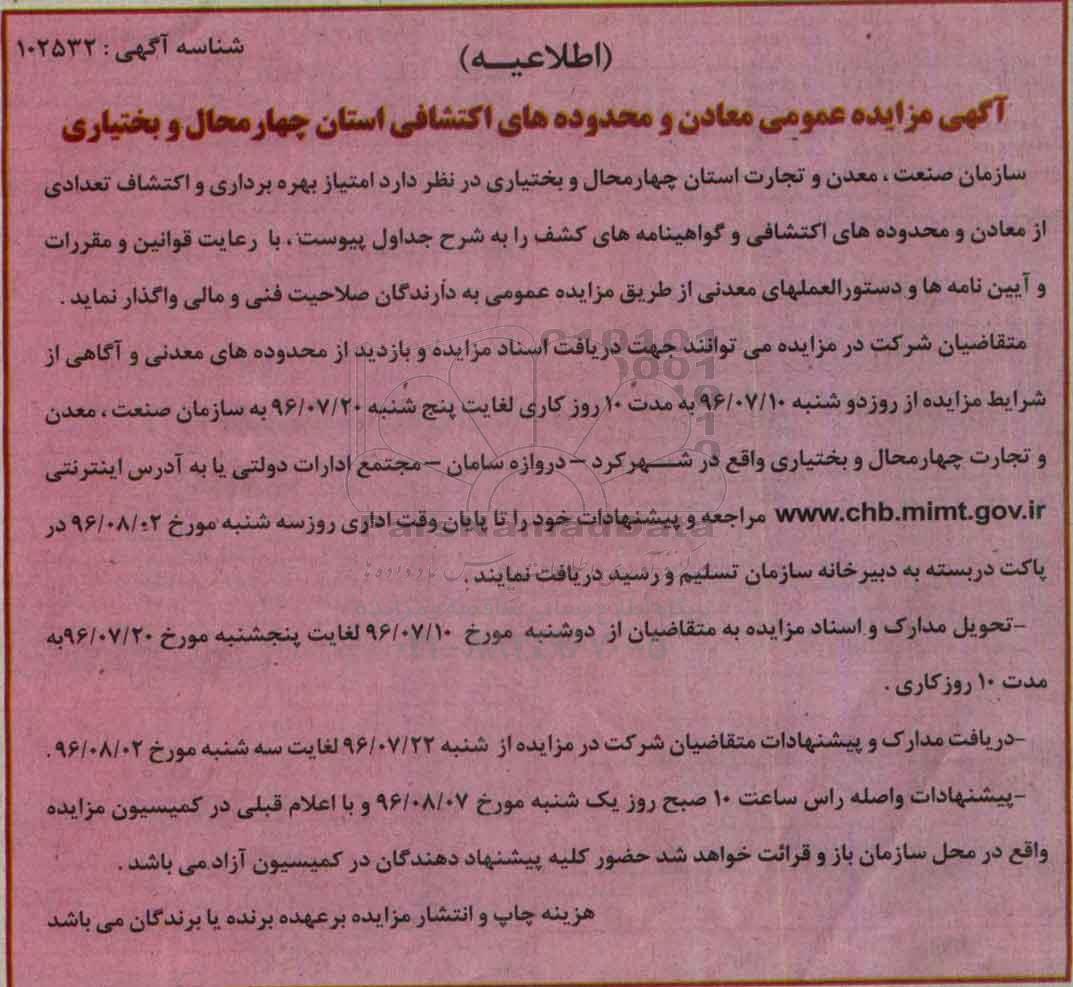 شناسه آگهی : ۱۰۲۵۳۲
(اطلاعیـــه)
آگهی مزایده عمومی معادن و محدوده های اکتشافی استان چهارمحال و بختیاری
سازمان صنعت ، معدن و تجارت استان چهارمحال و بختیاری در نظر دارد امتیاز بهره برداری و اکتشاف تعدادی
از معادن و محدوده های اکتشافی و گواهینامه های کشف را به شرح جداول پیوست ، با رعایت قوانین و مقررات
و آیین نامه ها و دستورالعملهای معدنی از طریق مزایده عمومی به دارندگان صلاحیت فنی و مالی واگذار نماید .
متقاضیان شرکت در مزایده می توانند جهت دریافت اسناد مزایده و بازدید از محدوده های معدنی و آگاهی از
شرایط مزایده از روزدو شنبه ۹۶/۰۷/۱۰ به مدت ۱۰ روز کاری لغایت پنج شنبه ۹۶/۰۷/۲۰ به سازمان صنعت ، معدن
و تجارت چهارمحال و بختیاری واقع در شــهرکرد –دروازه سامان –مجتمع ادارات دولتی یا به آدرس اینترنتی
www.chb.mimt.gov.ir مراجعه و پیشنهادات خود را تا پایان وقت اداری روزسه شنبه مورخ ۹۶/۰۸/۰۲ در
پاکت دربسته به دبیرخانه سازمان تسلیم و رسید دریافت نمایند .
-تحویل مدارک و اسناد مزایده به متقاضیان از دوشنبه مورخ ۹۶/۰۷/۱۰ لغایت پنجشنبه مورخ ۹۶/۰۷/۲۰به
مدت ۱۰ روزکاری .
-دریافت مدارک و پیشنهادات متقاضیان شرکت در مزایده از شنبه ۹۶/۰۷/۲۲ لغایت سه شنبه مورخ ۹۶/۰۸/۰۲ .
-پیشنهادات واصله راس ساعت ۱۰ صبح روز یک شنبه مورخ ۹۶/۰۸/۰۷ و با اعلام قبلی در کمیسیون مزایده
واقع در محل سازمان باز و قرائت خواهد شد حضور کلیه پیشنهاد دهندگان در کمیسیون آزاد می باشد .
هزینه چاپ و انتشار مزایده برعهده برنده یا برندگان می باشد
ParsNamadData